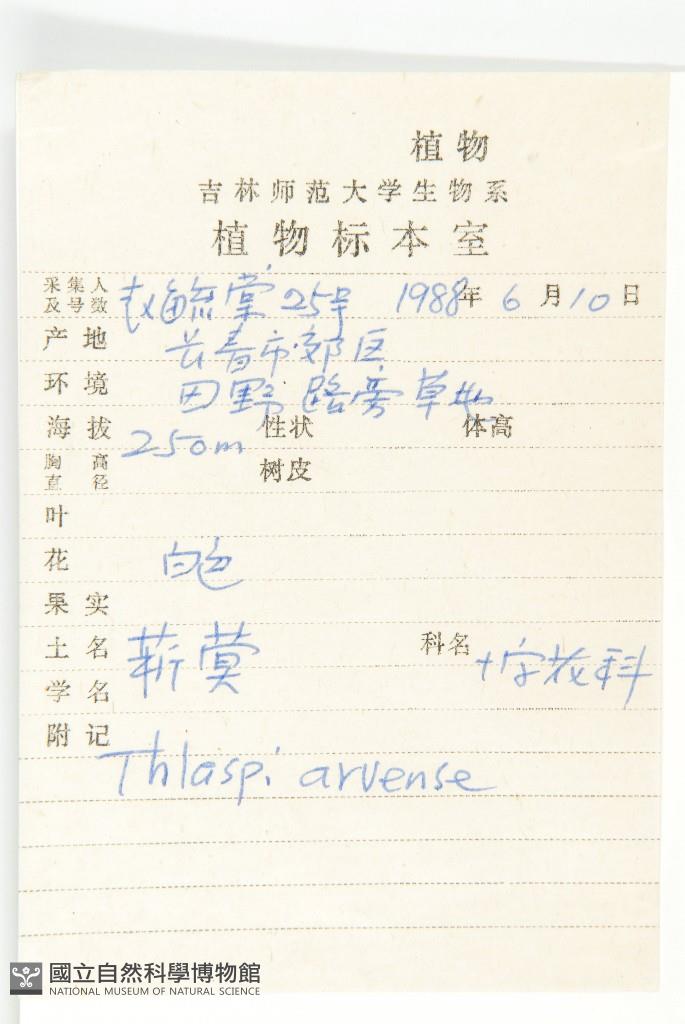 植物
吉林师范大学生物系
植物标本室
采集人及号数 赵毓棠 25号 1988年6月10日
产地 长春市郊区
环境 田野路旁草地
海拔 250m 性状 体高
胸高直径 树皮
叶
花 白色
果实
土名 菥蓂 科名 十字花科
学名
附记
Thlaspi arvense
國立自然科學博物館
NATIONAL MUSEUM OF NATURAL SCIENCE